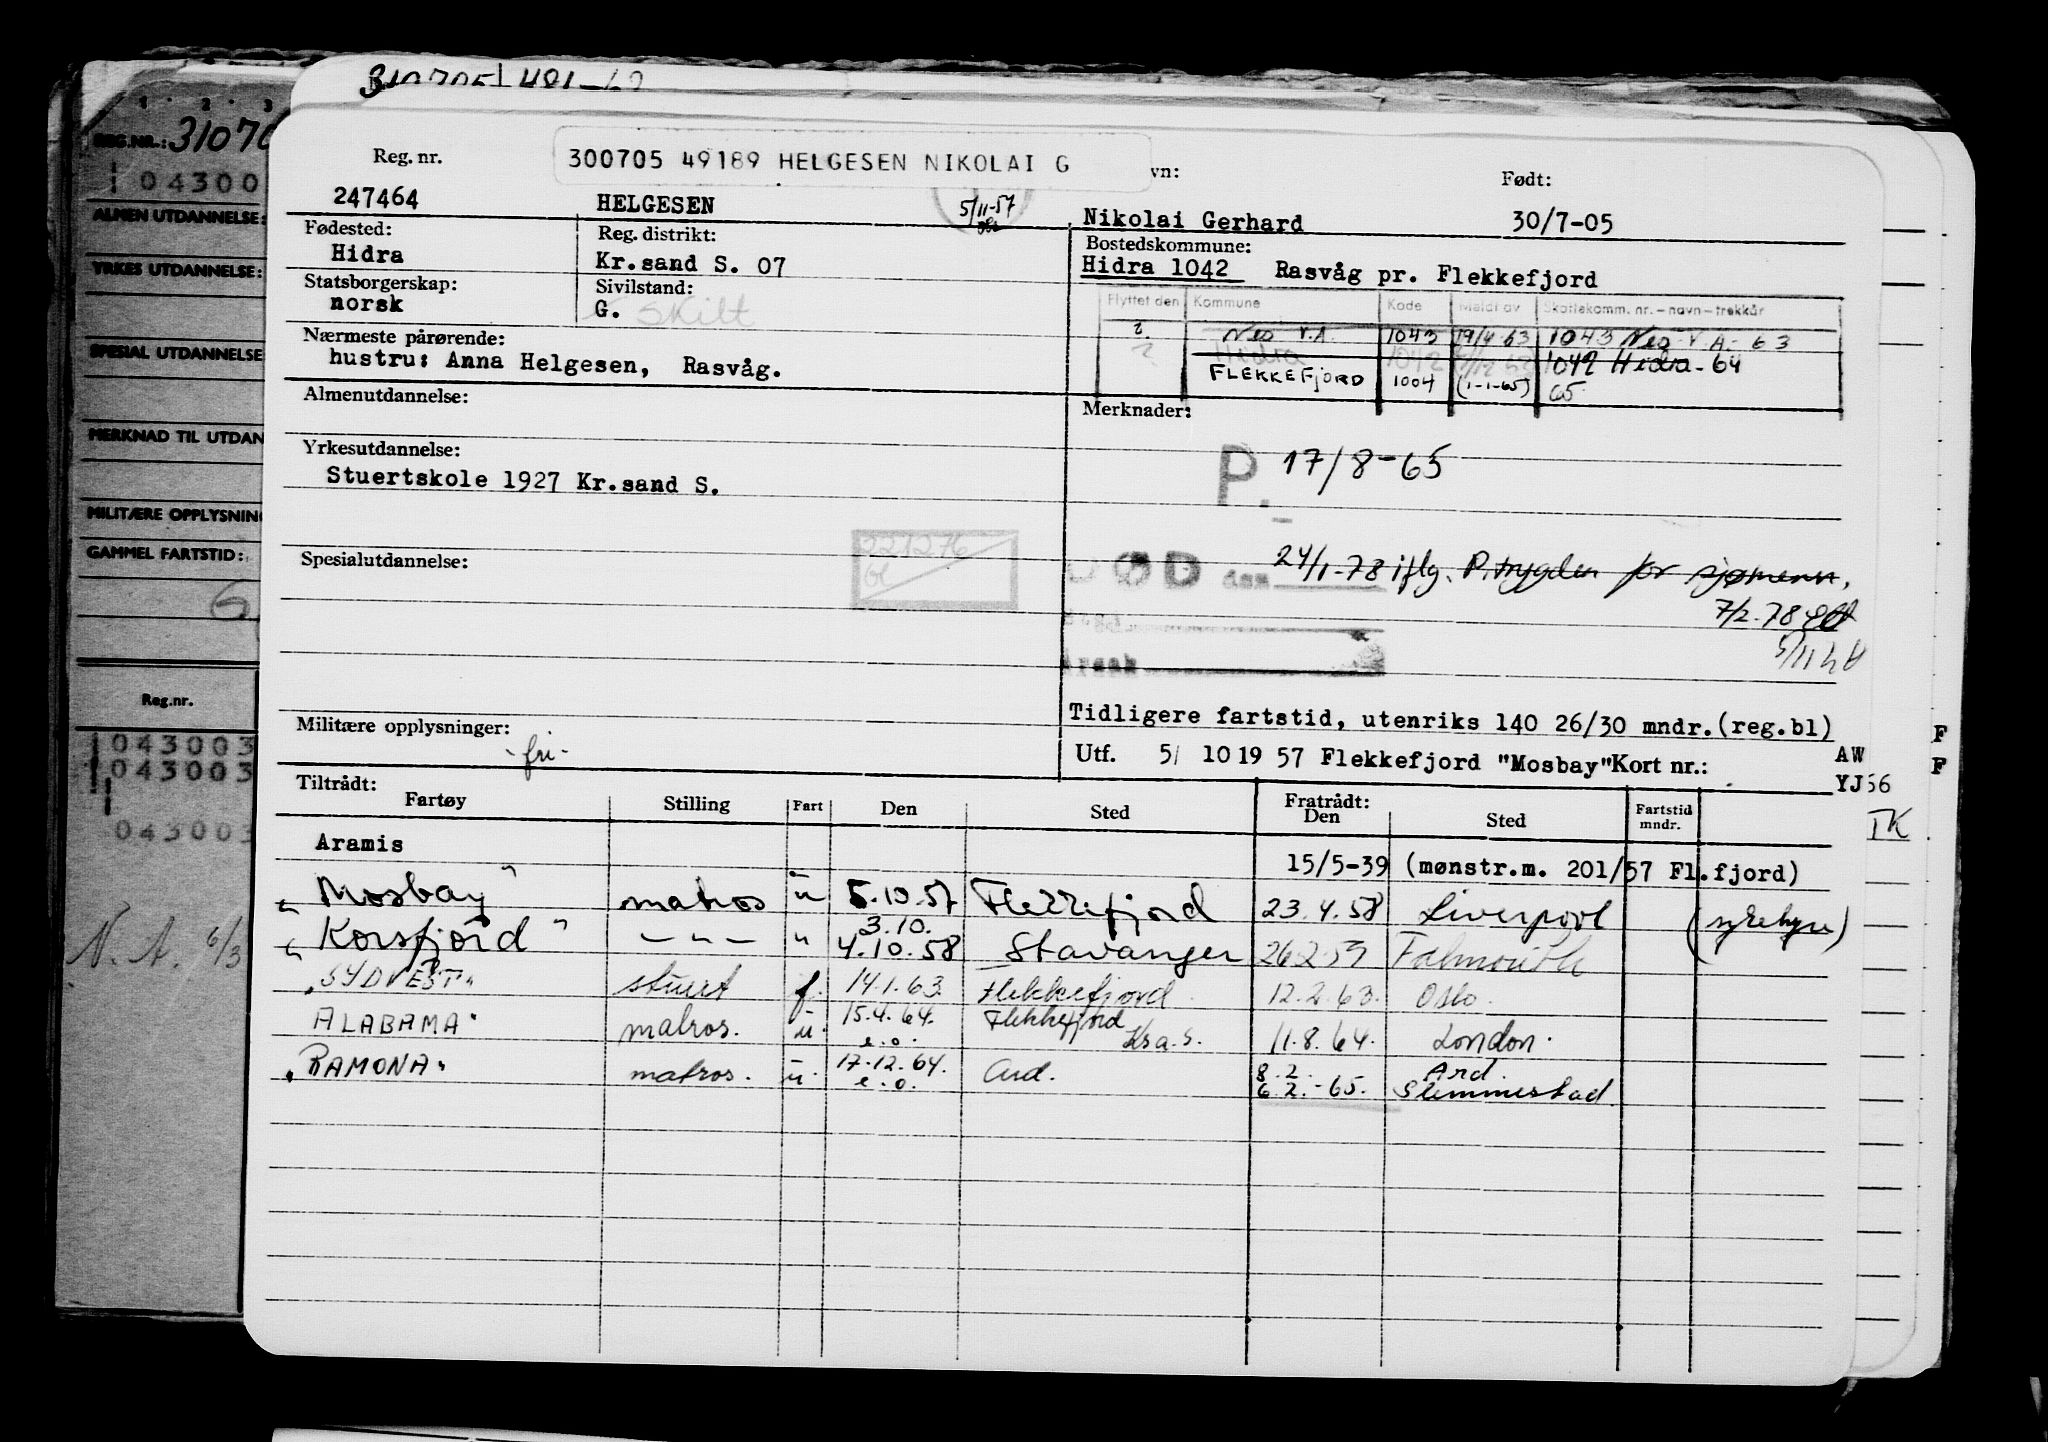 310705 481-62
1 · 2 · 3
REG.NR.: 31070
04300
ALMEN UTDANNELSE:
YRKES UTDANNELSE:
SPESIAL UTDANNELSE
MERKNAD TIL UTDAN
MILITÆRE OPPLYSNING
GAMMEL FARTSTID:
G
Reg.nr.
043003
043003
043003
N. A. 6/3
Reg. nr.
300705 49189 HELGESEN NIKOLAI G
vn:
Født:
247464
HELGESEN
5/11-57
Nikolai Gerhard
30/7-05
Fødested:
Hidra
Reg. distrikt:
Kr.sand S. 07
Bostedskommune:
Hidra 1042 Rasvåg pr. Flekkefjord
Statsborgerskap:
norsk
Sivilstand:
G. skilt
Flyttet den Kommune Kode Meldt av Skattekomm. nr. – navn – trekkår
? Nes V.A. 1043 19/4 63 1043 Nes V.A. - 63
? Hidra 1042 1042 Hidra - 64
FLEKKEFJORD 1004 (1-1-65) 65.
Nærmeste pårørende:
hustru: Anna Helgesen, Rasvåg.
Almenutdannelse:
Merknader:
Yrkesutdannelse:
Stuertskole 1927 Kr.sand S.
P. 17/8-65
Spesialutdannelse:
221276
bl
DØD den 24/1-78 iflg. P.trygden for sjømenn,
7/2.78
Årsak
5/11 47
Tidligere fartstid, utenriks 140 26/30 mndr.(reg.bl)
Militære opplysninger:
-fri-
Utf. 5/ 10 19 57 Flekkefjord "Mosbay" Kort nr.:
AW
YJ56
IK
F
F
Tiltrådt:
Fartøy Stilling Fart Den Sted Fratrådt: Den Sted Fartstid mndr.
Aramis 15/5-39 (mønstr.m. 201/57 Fl.fjord)
"Mosbay" matros u 5.10.57 Flekkefjord 23.4.58 Liverpool (sykehjre)
3.10.
"Korsfjord" — " — " 4.10.58 Stavanger 26 2 59 Falmouth
"SYDVEST" stuert f. 14.1.63 Flekkefjord. 12.2.63. Oslo.
ALABAMA" matros. u. 15.4.64. e.o. Flekkefjord Kra.s. 11.8.64. London.
"RAMONA" matros. u. 17.12.64. e.o. Ard. 8.2. Ard.
6.2.-65. Slemmestad